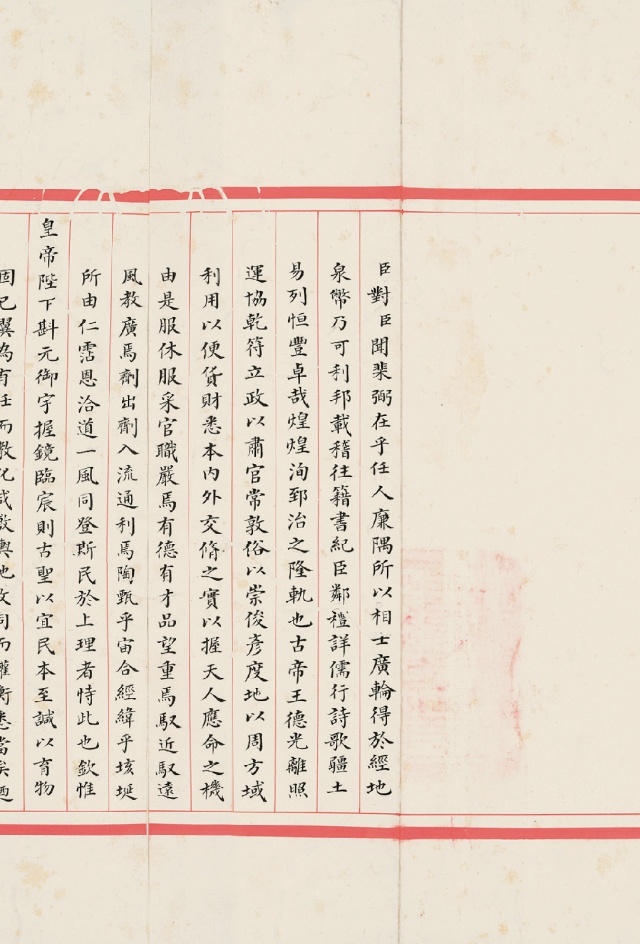 臣對臣聞棐弼在乎任人廉隅所以相士廣輪得於經地
泉幣乃可利邦載稽往籍書紀臣鄰禮詳儒行詩歌疆土
易列恒豐卓哉煌煌洵郅治之隆軌也古帝王德光離照
運協乾符立政以肅官常敦俗以崇俊彥度地以周方域
利用以便貨財悉本內外交脩之實以握天人應命之機
由是服休服采官職嚴焉有德有才品望重焉馭近馭遠
風教廣焉劑出劑入流通利焉陶甄乎宙合經緯乎垓埏
所由仁霑恩洽道一風同登斯民於上理者恃此也欽惟
皇帝陛下斟元御宇握鏡臨宸則古聖以宜民本至誠以育物
固已翼為有任而教化咸敷輿地攸同而權衡悉當矣迺